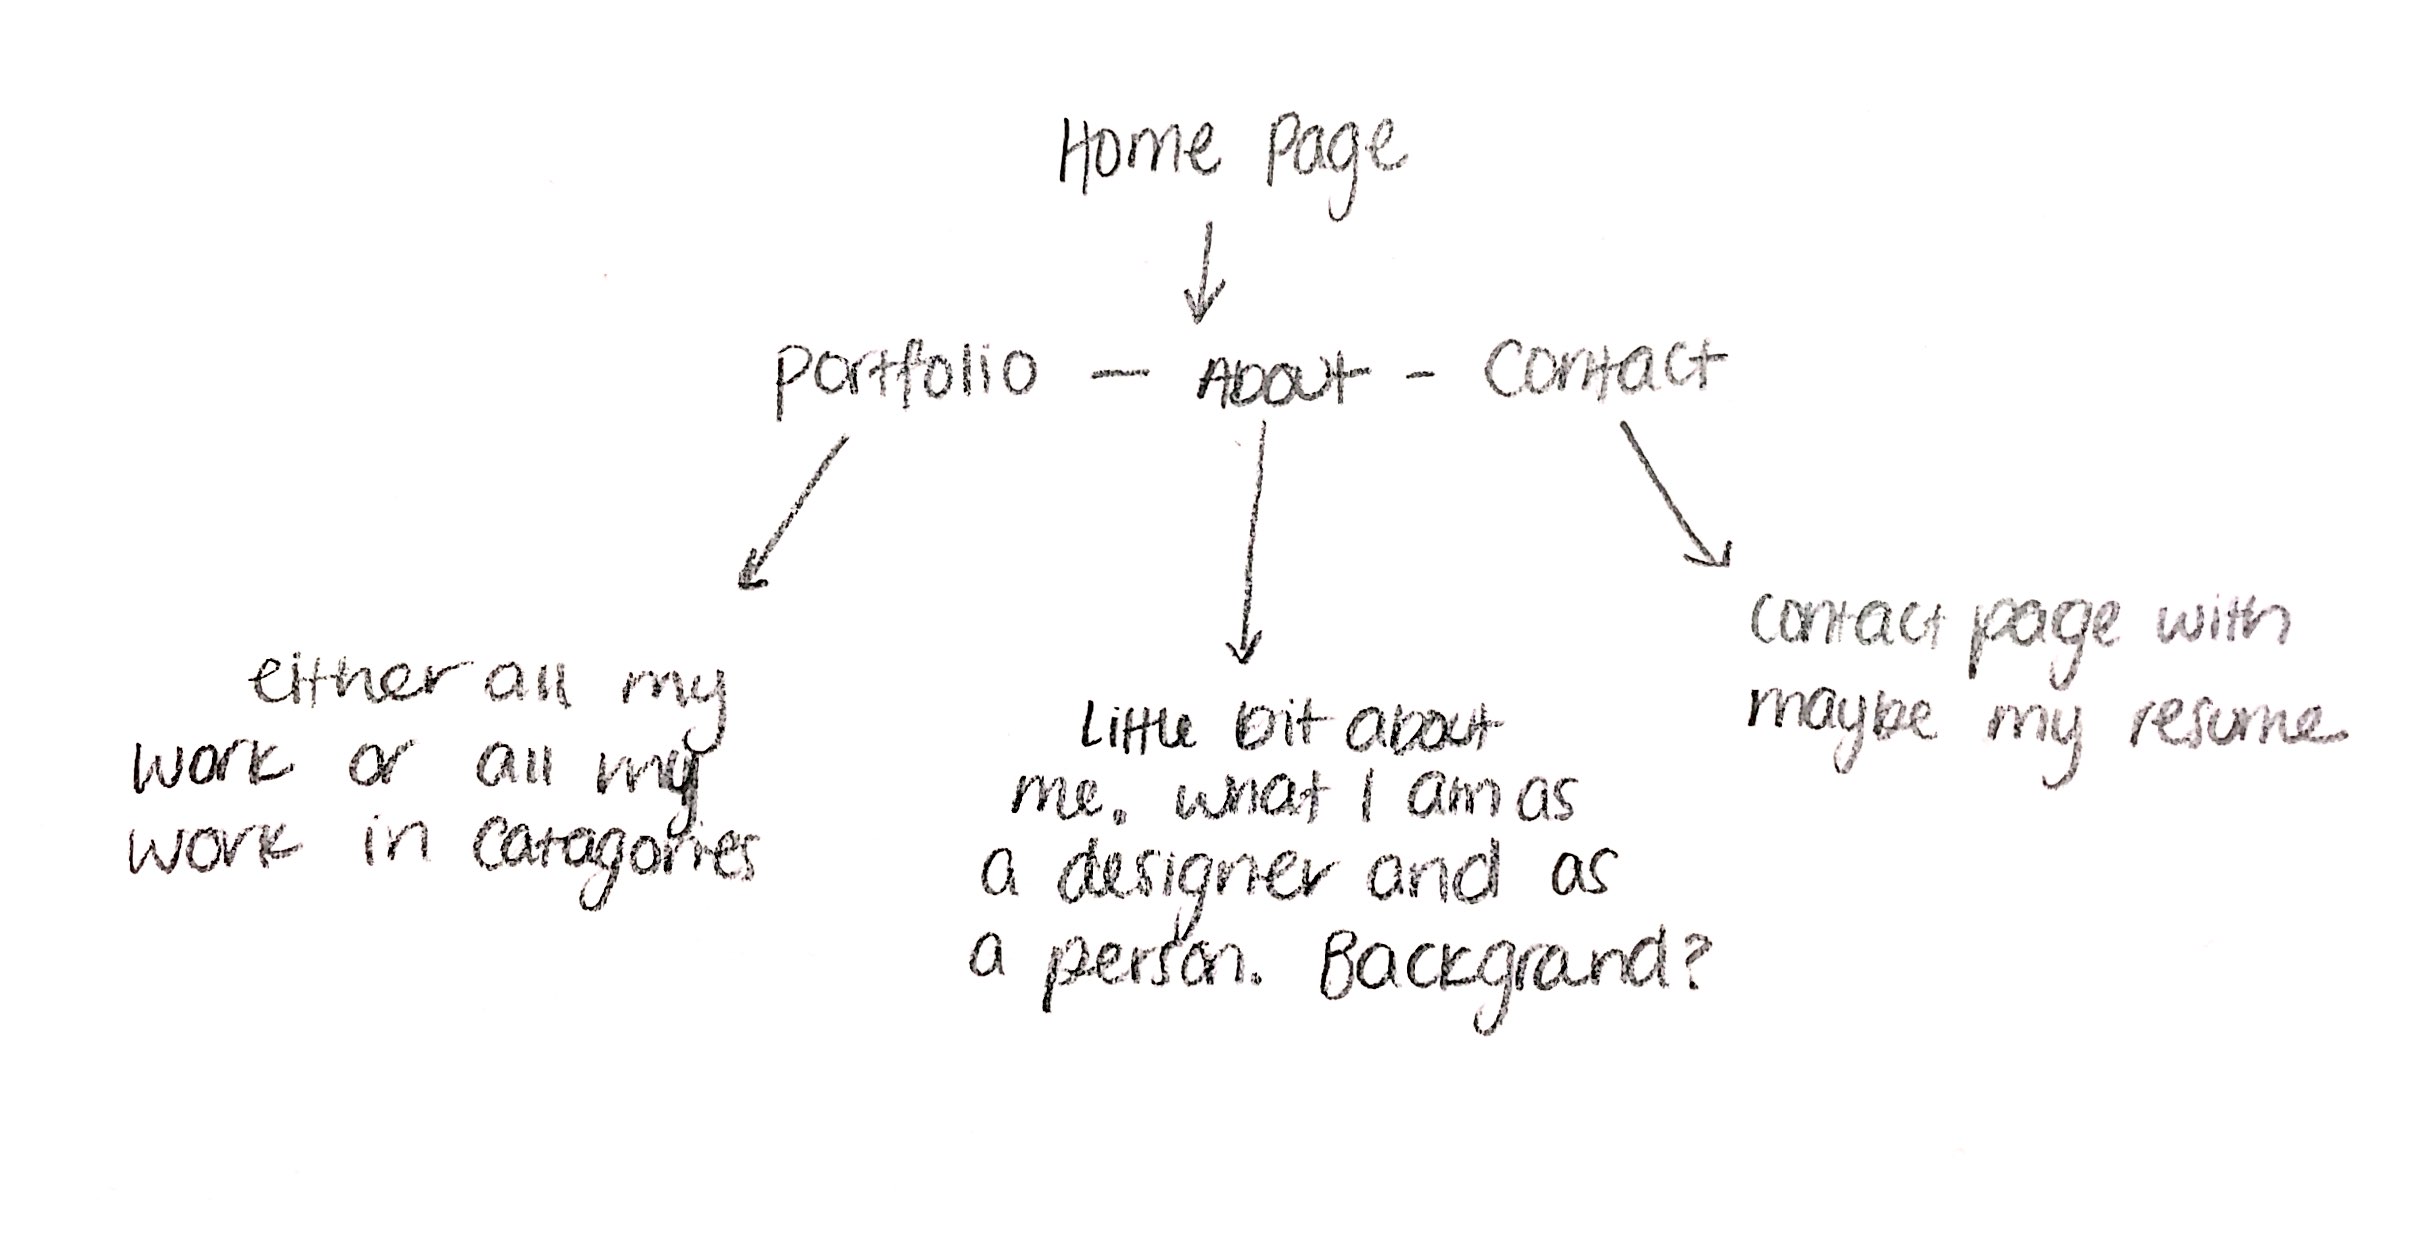 Home Page
Portfolio — About - Contact
either all my
work or all my
work in catagories
Little bit about
me. what I am as
a designer and as
a person. Background?
contact page with
maybe my resume